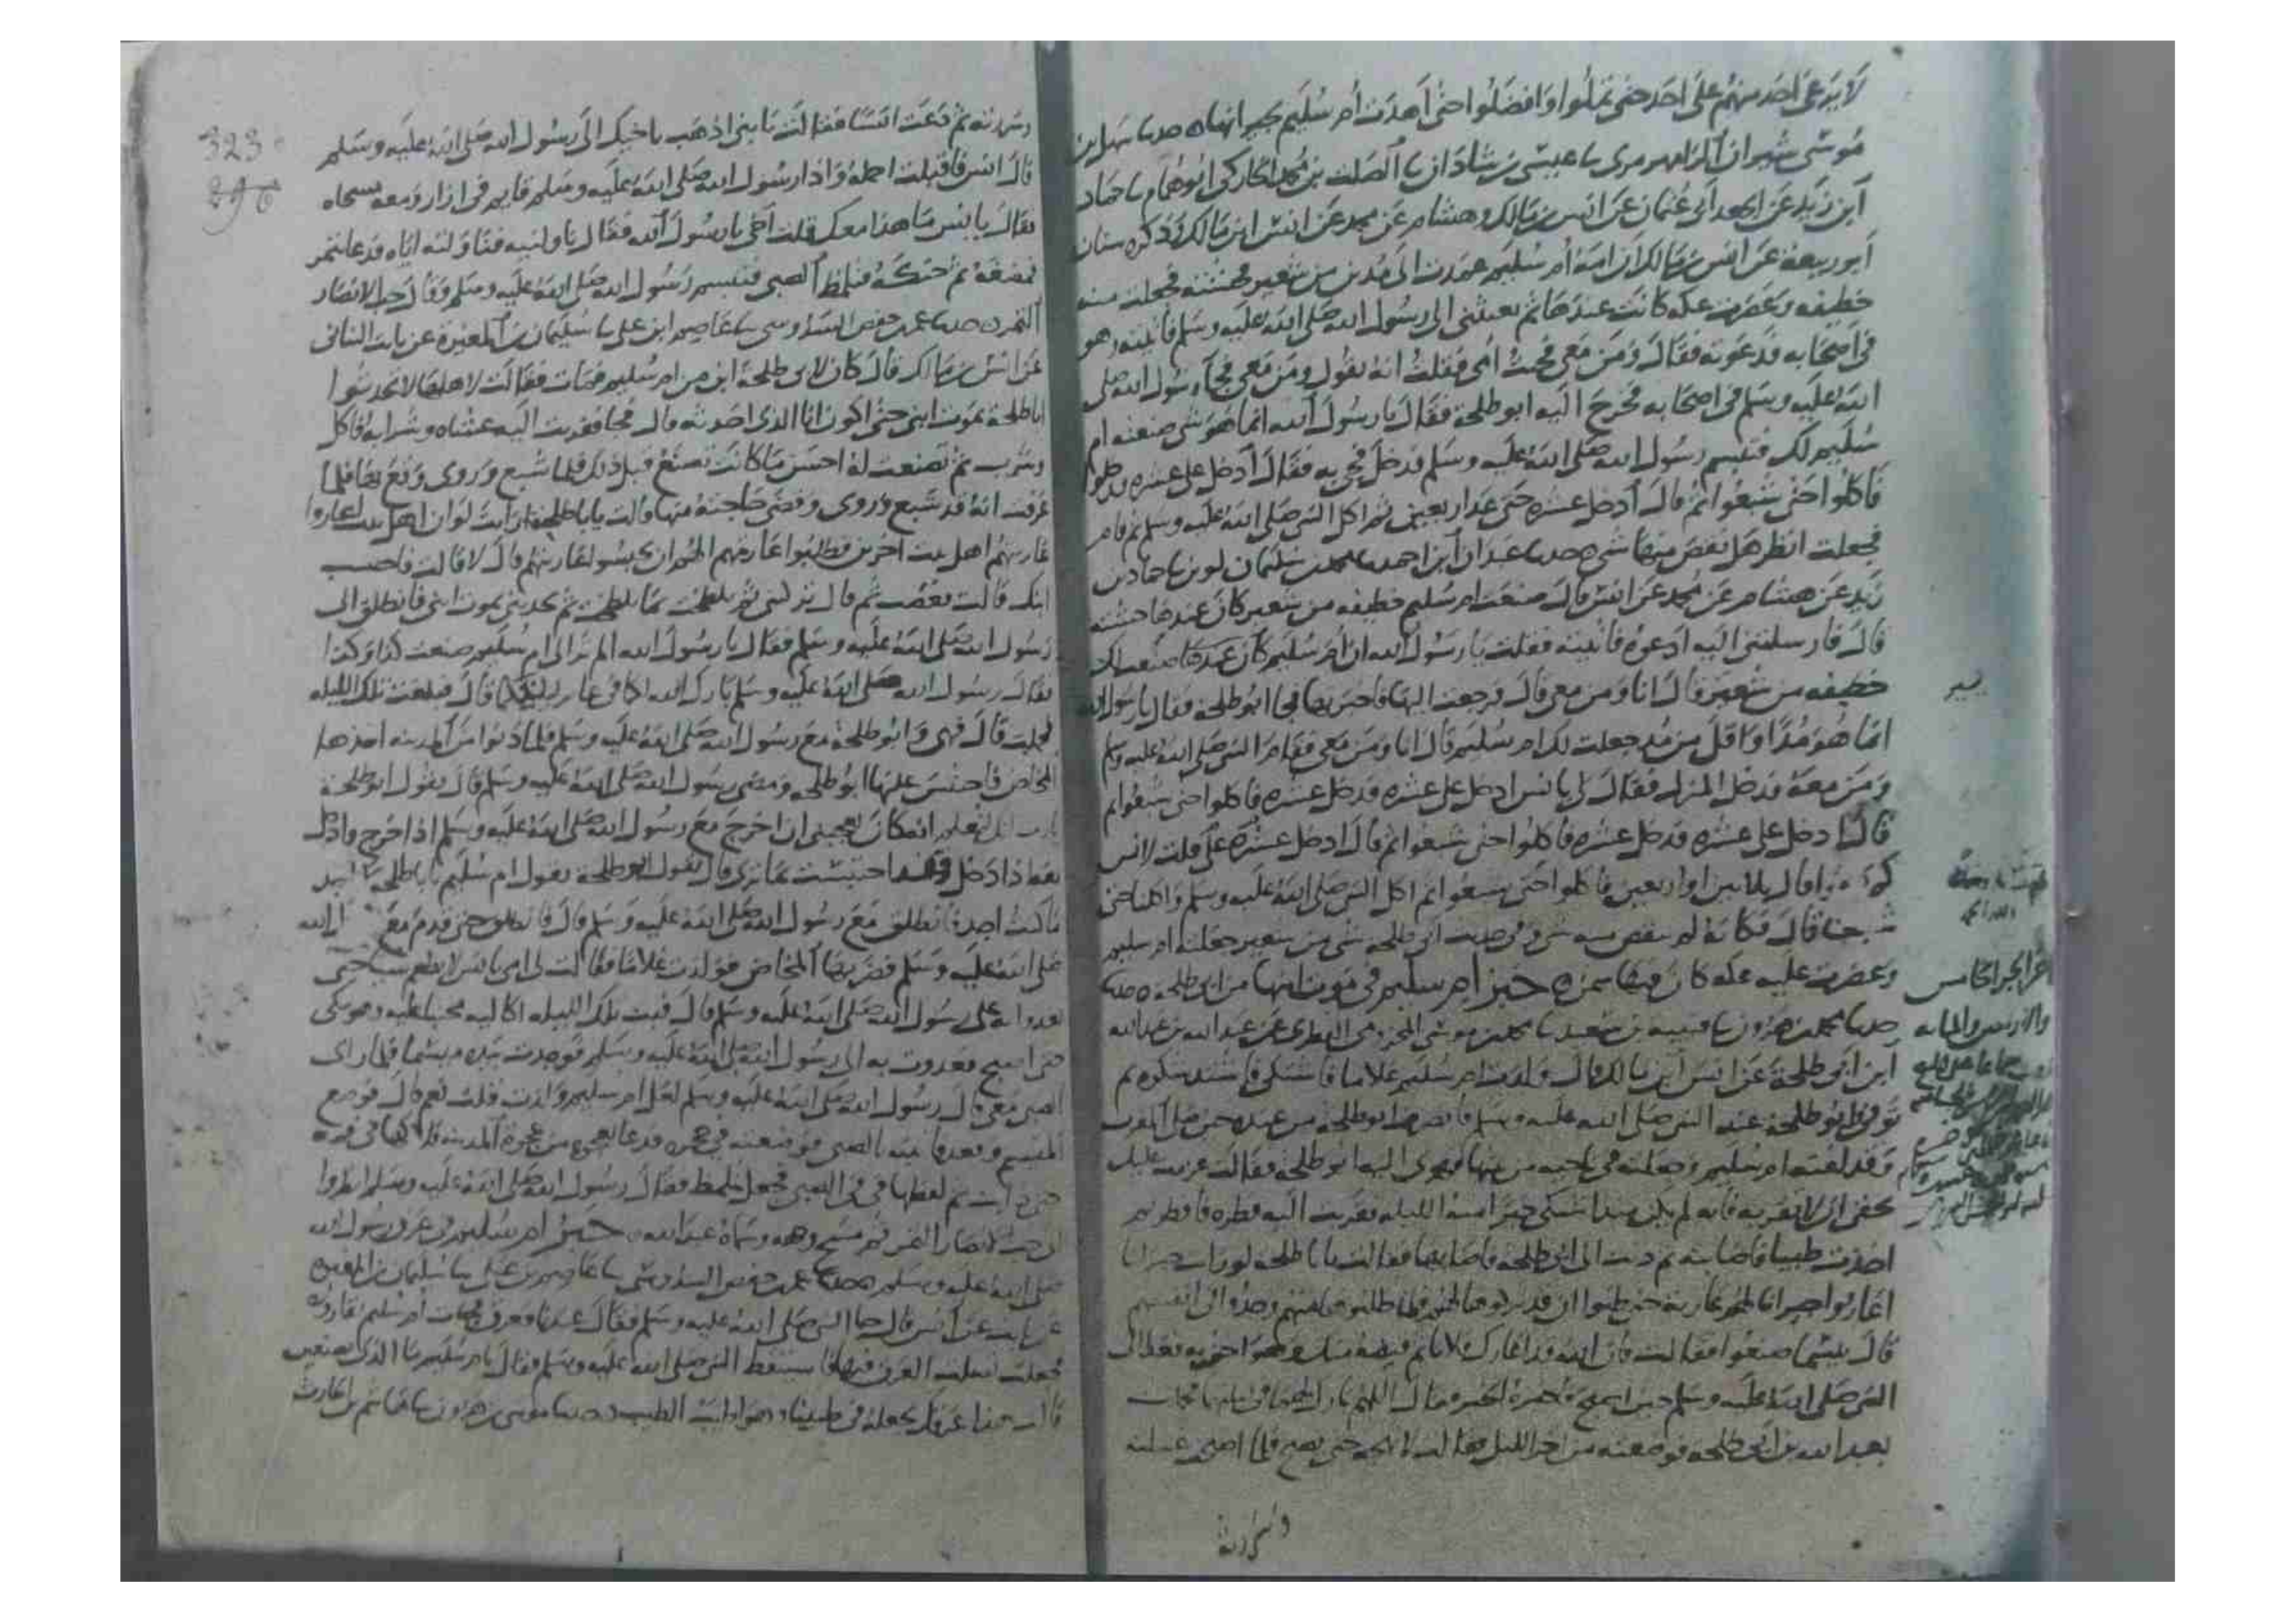 لا يدعى احد منهم على احد حتى تملوا وافضلوا حتى اهدت ام سليم لجيرانها ه حدثنا سهل بن
موسى شيران الرامهرمزي نا عيسى بن شاذان نا الصلت بن محمد الخاركي ابو همام نا حماد
ابن زيد عن الجعد ابي عثمان عن انس بن مالك وهشام عن محمد عن انس ابن مالك وذكره سنان
ابو ربيعة عن انس بن مالك ان امه ام سليم عمدت الى مدين من شعير فجشته فجعلت منه
خطيفه وعصرت عكه كانت عندها ثم بعثتني الى رسول الله صلى الله عليه وسلم فاتيته وهو
في اصحابه فدعوته فقال ومن معي فجئت امي فقلت انه يقول ومن معي فجاء رسول الله صلى
الله عليه وسلم في اصحابه فخرج اليه ابو طلحة فقال يا رسول الله انما هو شي صنعته ام
سليم لك فتبسم رسول الله صلى الله عليه وسلم فدخل فجي به فقال ادخل على عشره فدخلوا
فاكلوا حتى شبعوا ثم قال ادخل عشره حتى عد اربعين ثم اكل النبي صلى الله عليه وسلم ثم قام
فجعلت انظر هل نقص منها شي ه حدثنا عبدان ابن احمد نا محمد بن سليمان لوين نا حماد بن
زيد عن هشام عن محمد عن انس قال صنعت ام سليم خطيفه من شعير كان عندها جشته
قال فارسلتني اليه ادعوه فاتيته فقلت يا رسول الله ان ام سليم كان عندها صنعت لك
خطيفه من شعير قال انا ومن معي قال فرجعت اليها فاخبرتها فجا ابو طلحة فقال يا رسول الله
انما هو مدا او اقل من مد جعلت لك ام سليم قال انا ومن معي فقام النبي صلى الله عليه وسلم
ومن معه فدخل المنزل فقال لي يا انس ادخل على عشره فدخل عشره فاكلوا حتى شبعوا ثم
قال ادخل على عشره فدخل عشره فاكلوا حتى شبعوا ثم قال ادخل عشره على قلت لانس
كم قال ثلاثين او اربعين فاكلوا حتى شبعوا ثم اكل النبي صلى الله عليه وسلم واكلنا حتى
شبعنا قال فكانه لم ينقص منه شي وفي بيت ابي طلحه شي من شعير جعلته ام سليم
وعصرت عليه عكه كان فيها سمن ه خبر ام سليم في موت ابنها من ابي طلحة ه
حدثنا محمد بن هرون نا قتيبه بن سعيد نا محمد بن موسى المخزومي الفطري عن عبد الله بن عبد الله
ابن ابي طلحة عن انس ابن مالك قال ولدت ام سليم غلاما فاشتكى فاشتد شكوه ثم
توفي وابو طلحة عند النبي صلى الله عليه وسلم فانصرف ابو طلحة من عنده حين صلى المغرب
وقد لفته ام سليم وجعلته في ناحيه من بيتها فهوى اليه ابو طلحة فقالت عزمت عليك
بحقي ان لا تقربه فانه لم يكن منذ اشتكى خيرا منه الليله فقربت اليه فطره فافطر ثم
اخذت طيبا فاصابته ثم دنت الى ابي طلحه فاصابها فقالت يا ابا طلحه لو رايت جيرانا
اعاروا جيرانا لهم عارية حتى ظنوا ان قد تركوها لهم فلما طلبوها منهم وجدوا في انفسهم
قال بئسما صنعوا فقالت فان الله قد اعارك فلانا ثم قبضه منك وهو احق به فغدا الى
النبي صلى الله عليه وسلم حين اصبح فاخبره الخبر فقال اللهم بارك لهما في ليلتهما فجات
بعبد الله بن ابي طلحه فوضعته من اخر الليل فقالت لا حتى يصبح فلما اصبح غسلته
وسررته
اخر الجزء الخامس
والاربعين والمايه
323
296
وسررته ثم دعت انسا فقالت يا بني اذهب باخيك الى رسول الله صلى الله عليه وسلم
قال انس فاقبلت احمله واذا رسول الله صلى الله عليه وسلم قايم في ازار ومعه مسحاه
فقال يا انس ما هذا معك قلت اخي يا رسول الله فقال ناولنيه فناولته اياه فدعا بتمر
فمضغه ثم حنكه فتلمظ الصبي فتبسم رسول الله صلى الله عليه وسلم وقال حب الانصار
التمر ه حدثنا عمر بن حفص السدوسي نا عاصم ابن علي نا سليمان بن المغيرة عن ثابت البناني
عن انس بن مالك قال كان لابي طلحة ابن من ام سليم فمات فقالت لاهلها لا تحدثوا
ابا طلحة بموت ابني حتى اكون انا الذي احدثه قال فجا فقربت اليه عشاه وشرابه فاكل
وشرب ثم تصنعت له احسن ما كانت تصنع قبل ذلك فلما شبع وروى وقع بها فلما
عرفت انه قد شبع وروى وقضى حاجته منها قالت يا ابا طلحة ارايت لو ان اهل بيت اعاروا
عاريتهم اهل بيت اخرين فطلبوا عاريتهم الهم ان يحبسوا عاريتهم قال لا قالت فاحتسب
ابنك قالت فغضب ثم قال تركتني ثم تلطخت بما تلطخت ثم تحدثيني بموت ابني فانطلق الى
رسول الله صلى الله عليه وسلم فقال يا رسول الله الم تر الى ام سليم صنعت كذا وكذا
فقال رسول الله صلى الله عليه وسلم بارك الله لكما في غابر ليلتكما قال فتلقت تلك الليله
فحملت قال فهي وابو طلحة مع رسول الله صلى الله عليه وسلم فلما دنوا من المدينه اخذها
المخاض فاحتبس عليها ابو طلحه ومضى رسول الله صلى الله عليه وسلم قال يقول ابو طلحة
يارب انك لتعلم انه كان يعجبني ان اخرج مع رسول الله صلى الله عليه وسلم اذا خرج وادخل
معه اذا دخل وقد احتبست بما ترى قال تقول ام سليم يا ابا طلحه ما اجد
ما كنت اجد فانطلق مع رسول الله صلى الله عليه وسلم قال فانطلق حتى قدم مع رسول الله
صلى الله عليه وسلم فضربها المخاض فولدت غلاما فقالت لي امي يا انس لا يطعم شيا حتى
تغدوا به على رسول الله صلى الله عليه وسلم قال فبت تلك الليله اكاليه محنيا عليه وهو يبكي
حتى اصبح فغدوت به الى رسول الله صلى الله عليه وسلم فوجدت بيده ميسما فلما راى
الصبي معي قال رسول الله صلى الله عليه وسلم لعل ام سليم ولدت قلت نعم قال فوضع
الميسم وقعد فاتيته بالصبي فوضعته في حجره فدعا بعجوه من عجوة المدينه فلاكها في فيه
حتى ذابت ثم لفظها في في الصبي فجعل يتلمظ فقال رسول الله صلى الله عليه وسلم انظروا
الى حب الانصار التمر ثم مسح وجهه وسماه عبد الله ه خبر ام سليم في عرق رسول الله
صلى الله عليه وسلم ه حدثنا عمر بن حفص السدوسي نا عاصم بن علي نا سليمان بن المغيره
عن ثابت عن انس قال جا النبي صلى الله عليه وسلم فقال عندنا فعرق فجات ام سليم بقارورة
فجعلت تسلت العرق فيها فاستيقظ النبي صلى الله عليه وسلم فقال يا ام سليم ما الذي تصنعين
قالت هذا عرقك نجعله في طيبنا وهو اطيب الطيب ه حدثنا موسى بن هرون نا هاشم بن الحارث